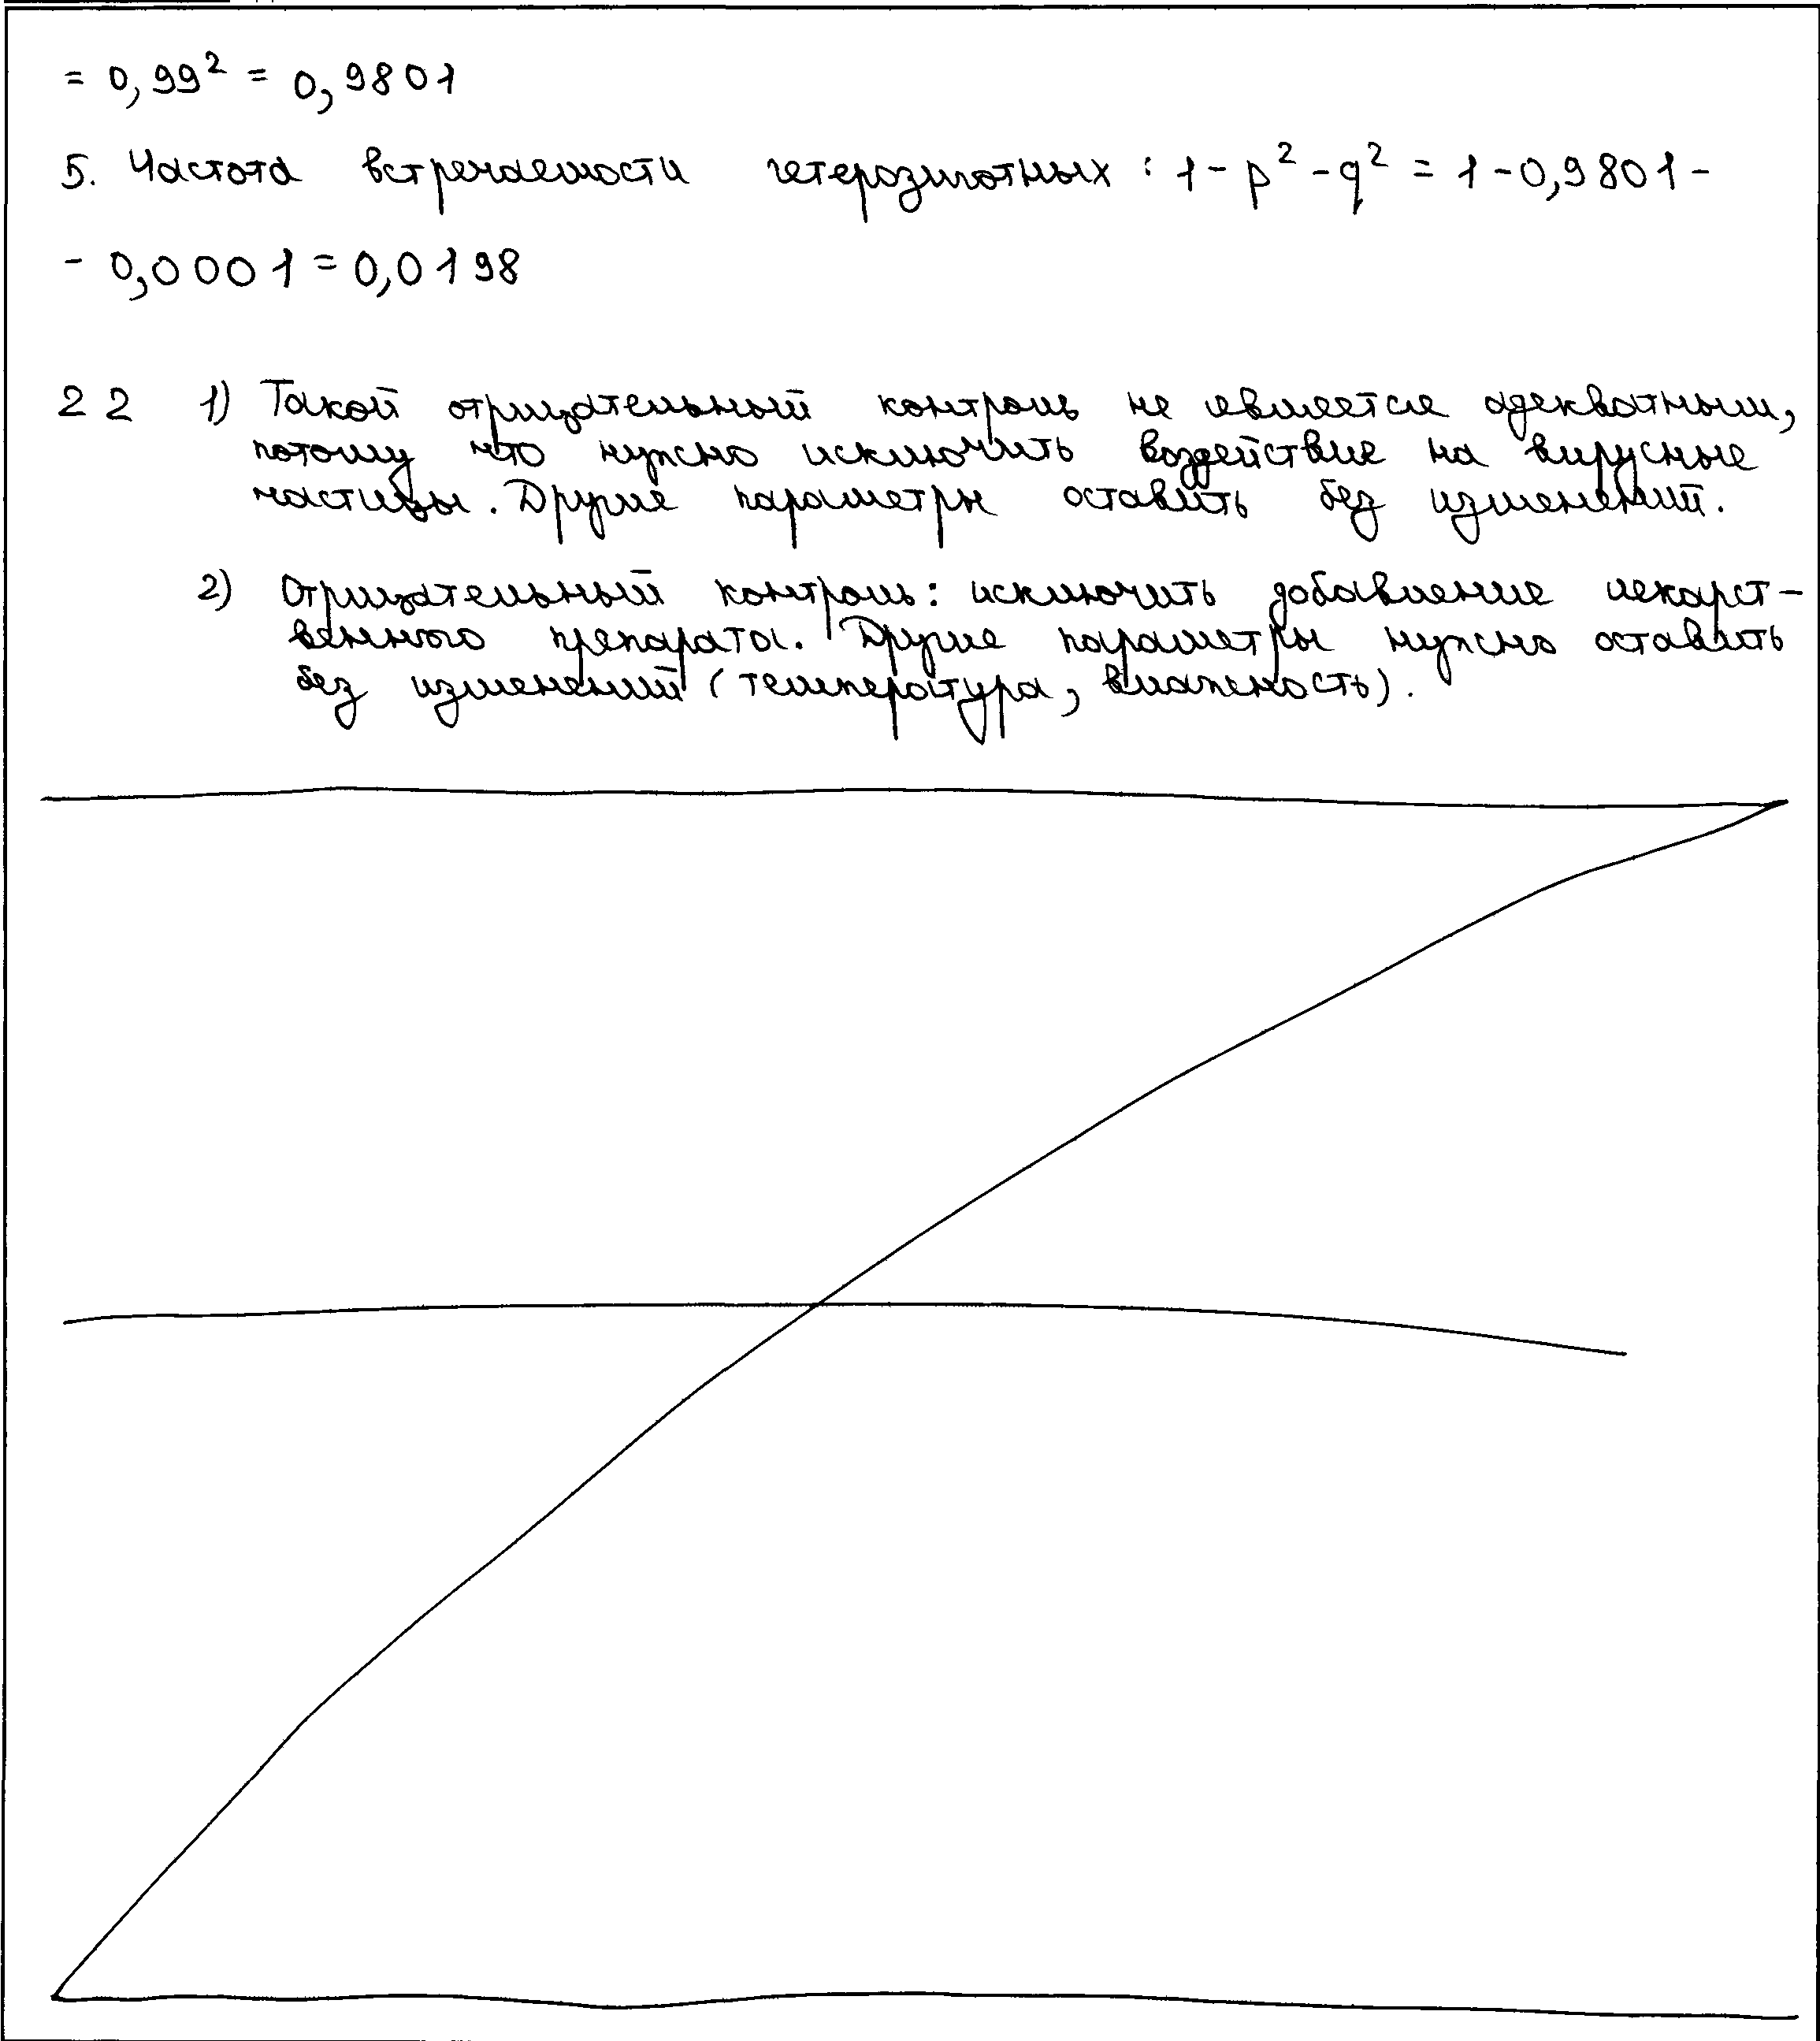 = 0,99² = 0,9801
5. Частота встречаемости гетерозиготных : 1 - p² - q² = 1 - 0,9801 -
- 0,0001 = 0,0198
22 1) Такой отрицательный контроль не является адекватным,
потому что нужно исключить воздействие на вирусные
частицы. Другие параметры оставить без изменений.
2) Отрицательный контроль: исключить добавление лекарст-
венного препарата. Другие параметры нужно оставить
без изменений (температура, влажность).